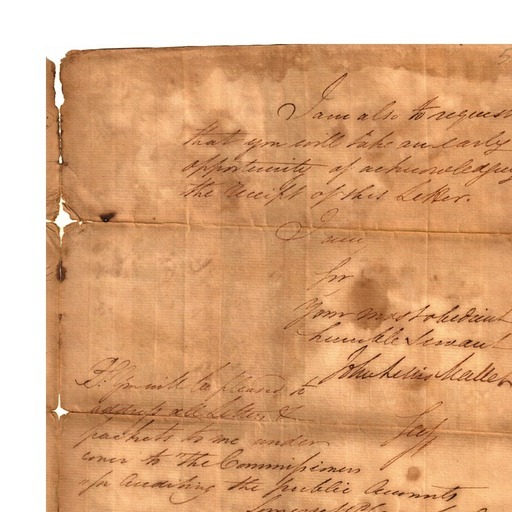 I am also to request
that you will take an early
opportunity of acknowledging
the receipt of this Letter.
I am
Sir
Your most obedient
humble Servant
John Lewis Mallet
Secy
P.S. You will be pleased to
address all Letters &
packets to me under
cover to the Commissioners
for Auditing the public Accounts
Somerset Place